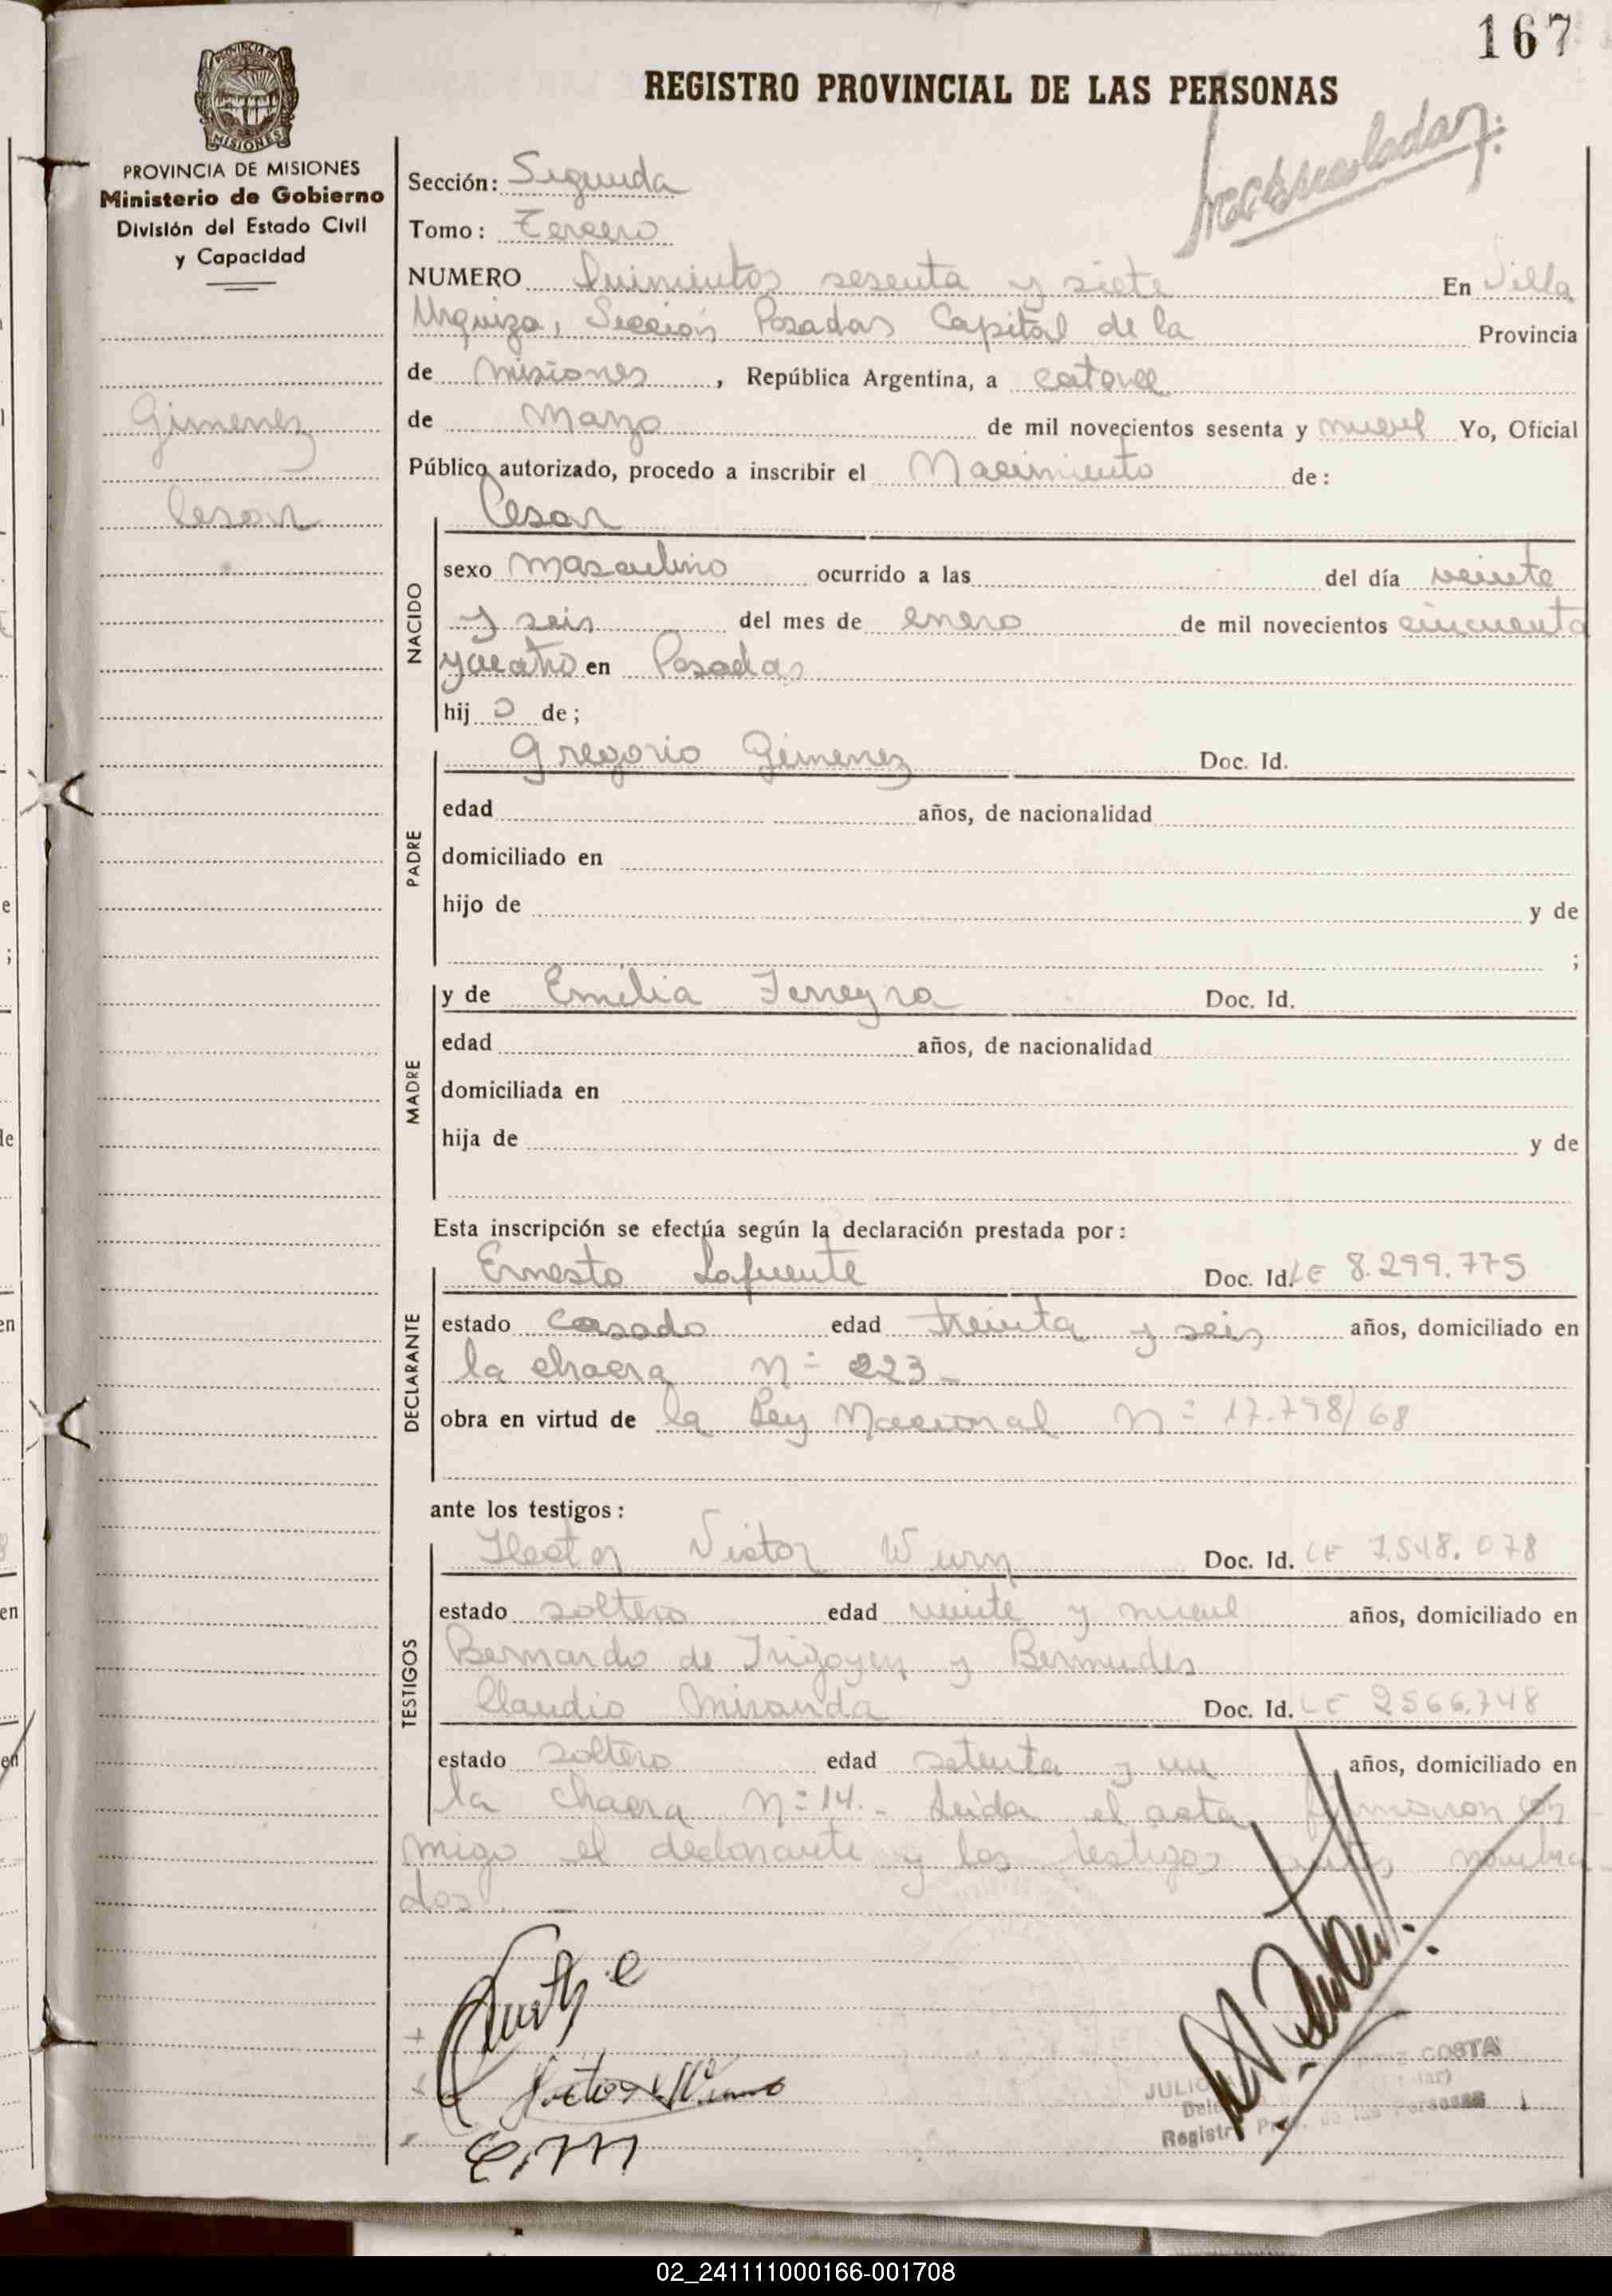 167
REGISTRO PROVINCIAL DE LAS PERSONAS
PROVINCIA DE
MISIONES
PROVINCIA DE MISIONES
Ministerio de Gobierno
División del Estado Civil
y Capacidad
Gimenez
Cesar
Sección: Segunda
Tomo: Tercero
NUMERO Quinientos sesenta y siete En Villa
Urquiza, Sección Posadas Capital de la Provincia
de Misiones, República Argentina, a catorce
de Marzo de mil novecientos sesenta y nueve Yo, Oficial
Público autorizado, procedo a inscribir el Nacimiento de:
NACIDO
Cesar
sexo masculino ocurrido a las del día veinte
y seis del mes de enero de mil novecientos cincuenta
y cuatro en Posadas
hijo de;
PADRE
Gregorio Gimenez Doc. Id.
edad años, de nacionalidad
domiciliado en
hijo de y de
;
MADRE
y de Emilia Ferreyra Doc. Id.
edad años, de nacionalidad
domiciliada en
hija de y de
Esta inscripción se efectúa según la declaración prestada por:
DECLARANTE
Ernesto Lafuente Doc. Id. LE 8.299.775
estado casado edad treinta y seis años, domiciliado en
la chacra N= 223-
obra en virtud de la Ley Nacional N= 17.798/68
ante los testigos:
TESTIGOS
Hector Victor Wurn Doc. Id. LE 7.548.078
estado soltero edad veinte y nueve años, domiciliado en
Bernardo de Irigoyen y Bermudes
Claudio Miranda Doc. Id. LE 2566.748
estado soltero edad setenta y un años, domiciliado en
la chacra N=14.- Leida el acta firmaron con
migo el declarante y los testigos antes nombra
dos.-
COSTA
JULIO
Registr Prov. de las Personas
02_241111000166-001708